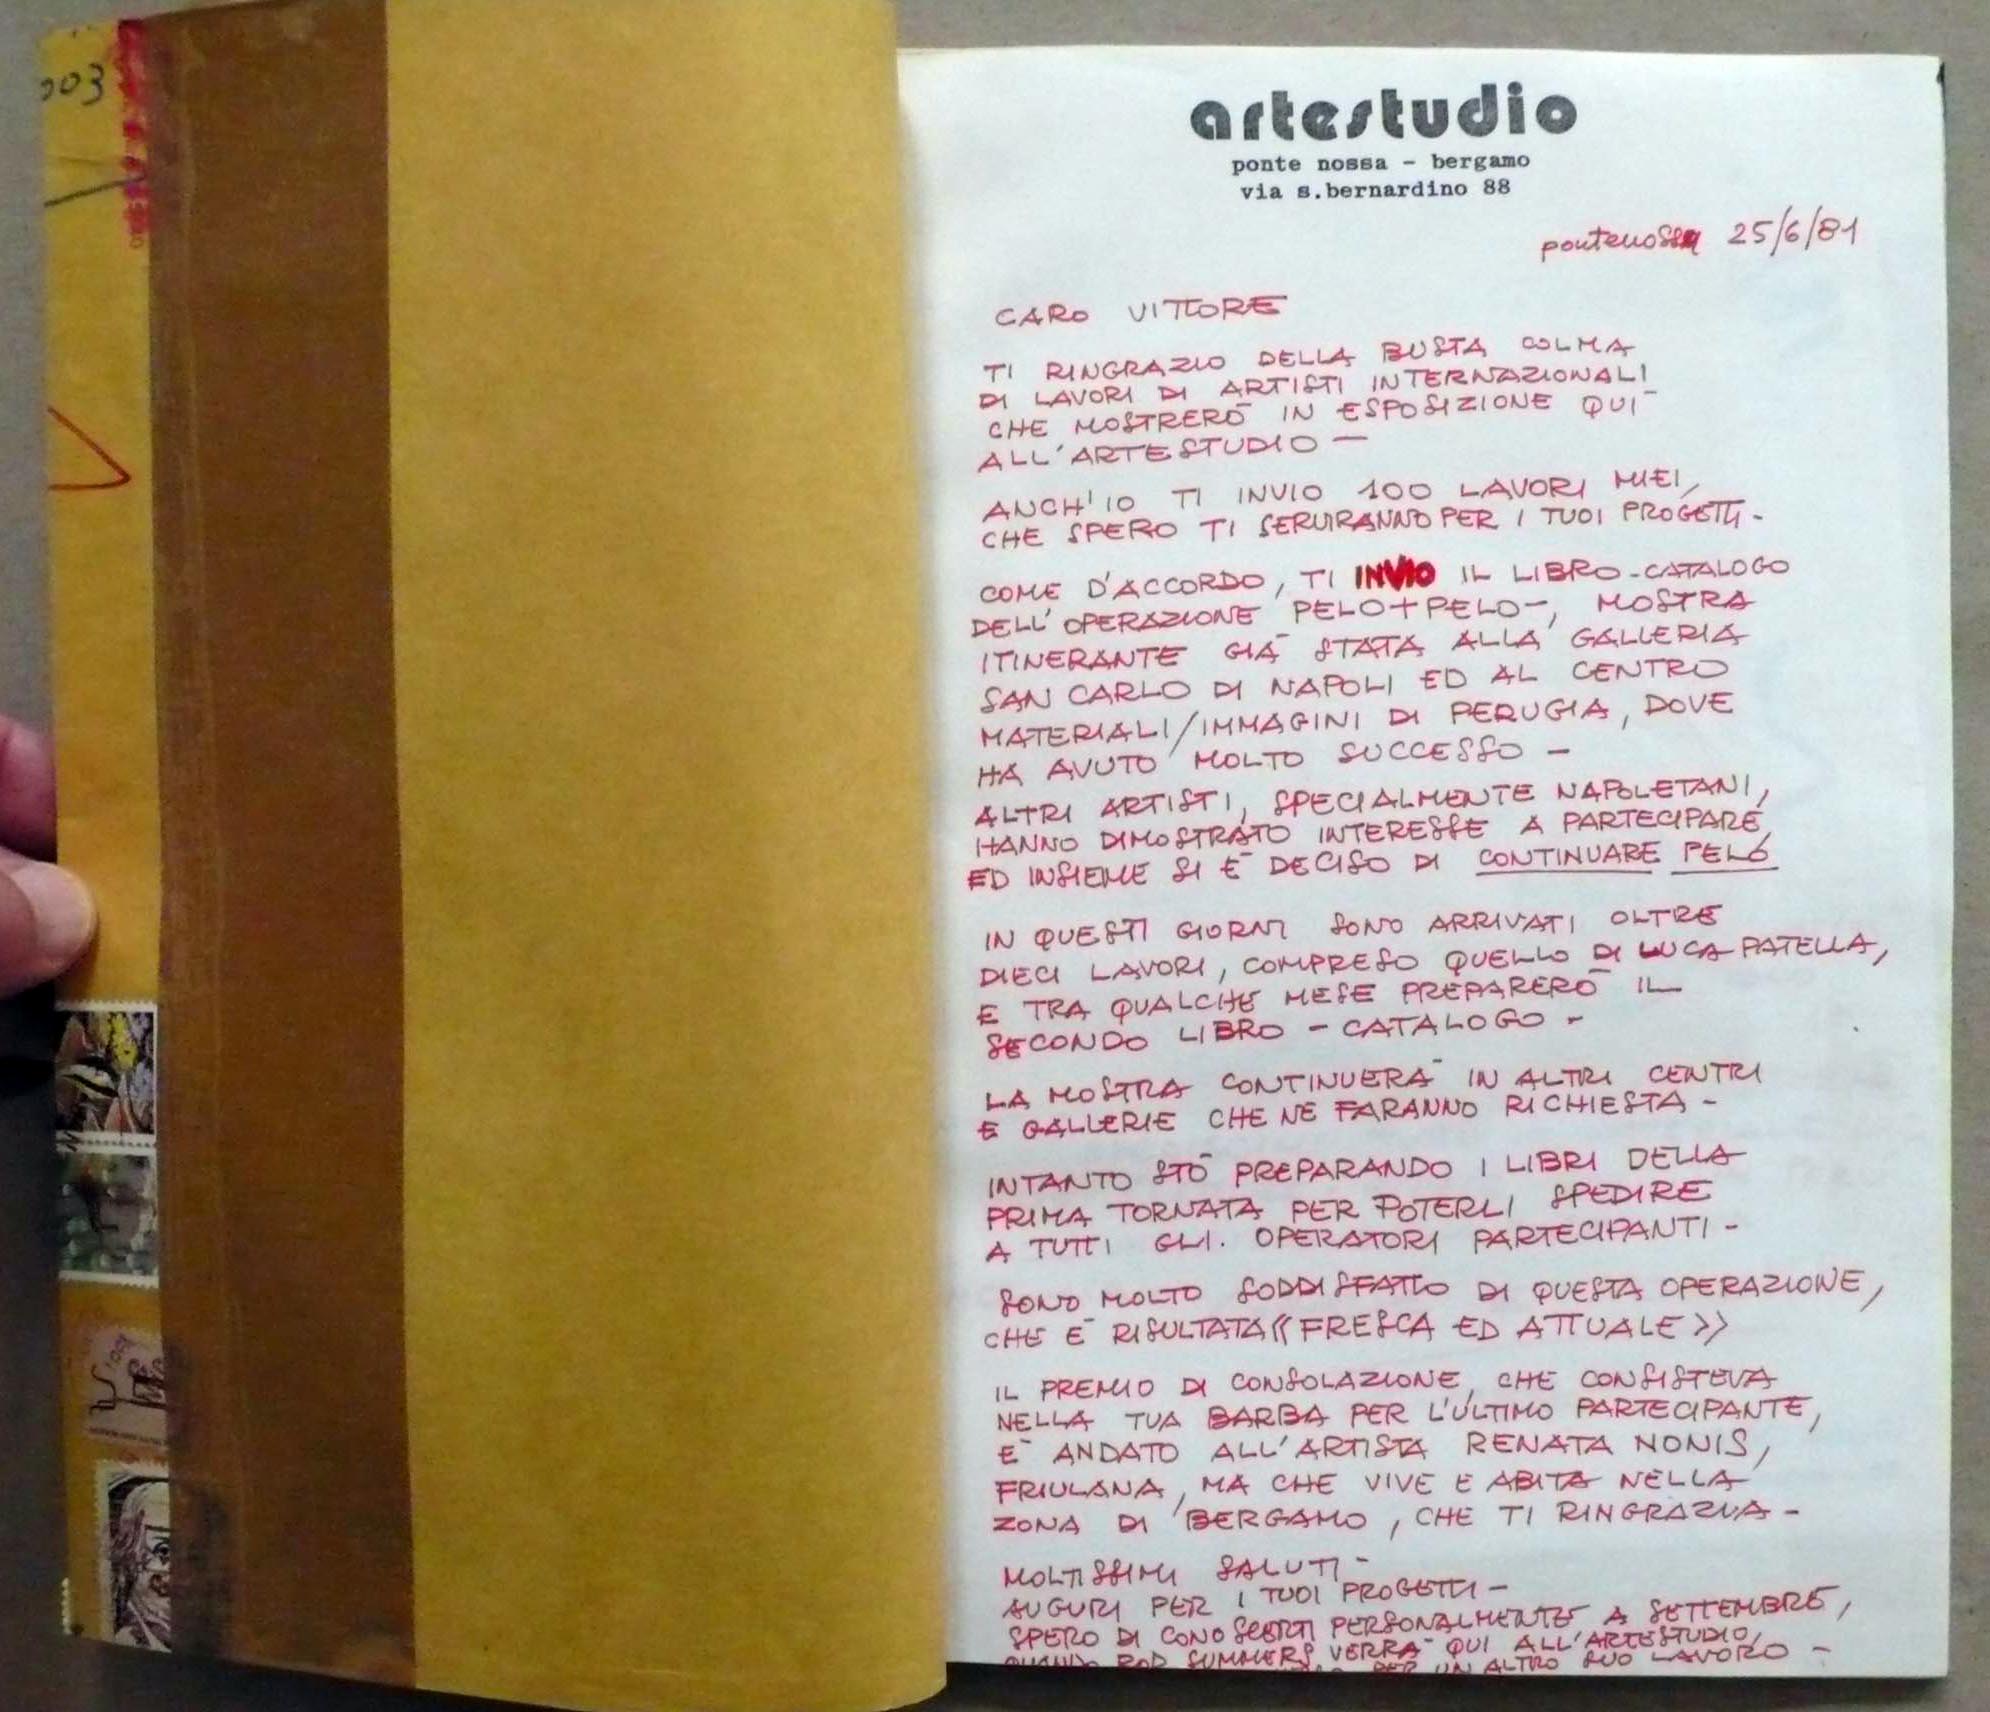 003
artestudio
ponte nossa - bergamo
via s.bernardino 88
pontenossa 25/6/81
CARO VITTORE
TI RINGRAZIO DELLA BUSTA COLMA
DI LAVORI DI ARTISTI INTERNAZIONALI
CHE MOSTRERÒ IN ESPOSIZIONE QUI
ALL'ARTESTUDIO —
ANCH'IO TI INVIO 100 LAVORI MIEI,
CHE SPERO TI SERVIRANNO PER I TUOI PROGETTI -
COME D'ACCORDO, TI INVIO IL LIBRO-CATALOGO
DELL'OPERAZIONE PELO+PELO-, MOSTRA
ITINERANTE GIÀ STATA ALLA GALLERIA
SAN CARLO DI NAPOLI ED AL CENTRO
MATERIALI/IMMAGINI DI PERUGIA, DOVE
HA AVUTO MOLTO SUCCESSO —
ALTRI ARTISTI, SPECIALMENTE NAPOLETANI,
HANNO DIMOSTRATO INTERESSE A PARTECIPARE,
ED INSIEME SI È DECISO DI CONTINUARE PELÒ
IN QUESTI GIORNI SONO ARRIVATI OLTRE
DIECI LAVORI, COMPRESO QUELLO DI LUCA PATELLA,
E TRA QUALCHE MESE PREPARERÒ IL
SECONDO LIBRO - CATALOGO -
LA MOSTRA CONTINUERÀ IN ALTRI CENTRI
E GALLERIE CHE NE FARANNO RICHIESTA -
INTANTO STÒ PREPARANDO I LIBRI DELLA
PRIMA TORNATA PER POTERLI SPEDIRE
A TUTTI GLI. OPERATORI PARTECIPANTI -
SONO MOLTO SODDISFATTO DI QUESTA OPERAZIONE,
CHE È RISULTATA «FRESCA ED ATTUALE»
IL PREMIO DI CONSOLAZIONE, CHE CONSISTEVA
NELLA TUA BARBA PER L'ULTIMO PARTECIPANTE,
È ANDATO ALL'ARTISTA RENATA NONIS,
FRIULANA, MA CHE VIVE E ABITA NELLA
ZONA DI BERGAMO, CHE TI RINGRAZIA -
MOLTISSIMI SALUTI -
AUGURI PER I TUOI PROGETTI -
SPERO DI CONOSCERTI PERSONALMENTE A SETTEMBRE,
QUANDO ROD SUMMERS VERRÀ QUI ALL'ARTESTUDIO,
PER UN ALTRO SUO LAVORO -